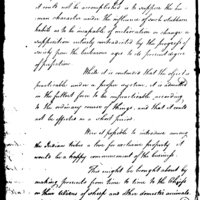 it could not be accomplished — is to suppose the hu-
man character under the influence of such stubborn
habits as to be incapable of melioration or change — a
supposition entirely contradicted by the progress of
society from the barbarous ages to its present degree
of perfection.
While it is contended that the object is
practicable under a proper system, it is admitted
in the fullest force to be impracticable, according
to the ordinary course of things, and that it could not
be effected in a short period.
Were it possible to introduce among
the Indian tribes a love for exclusive property it
would be a happy commencement of the business.
This might be brought about by
making presents from time to time to the Chiefs
or their Wives of sheep and other domestic animals